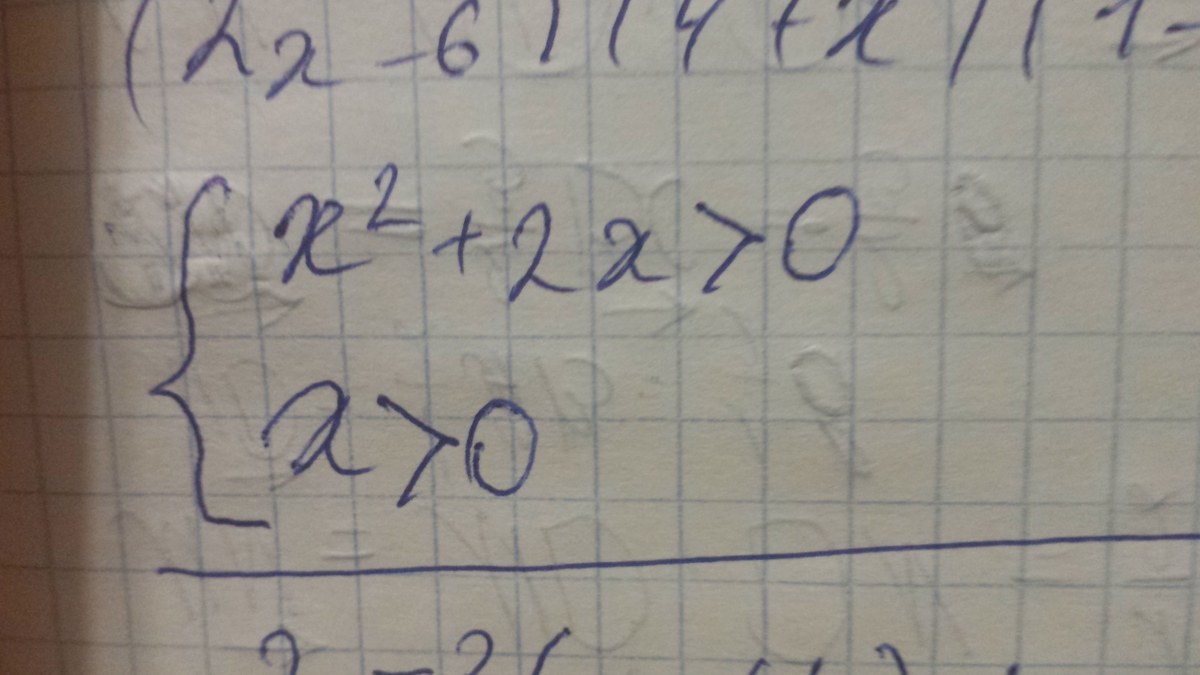 (2x-6)(4+x)(1-
x²+2x>0
x>0